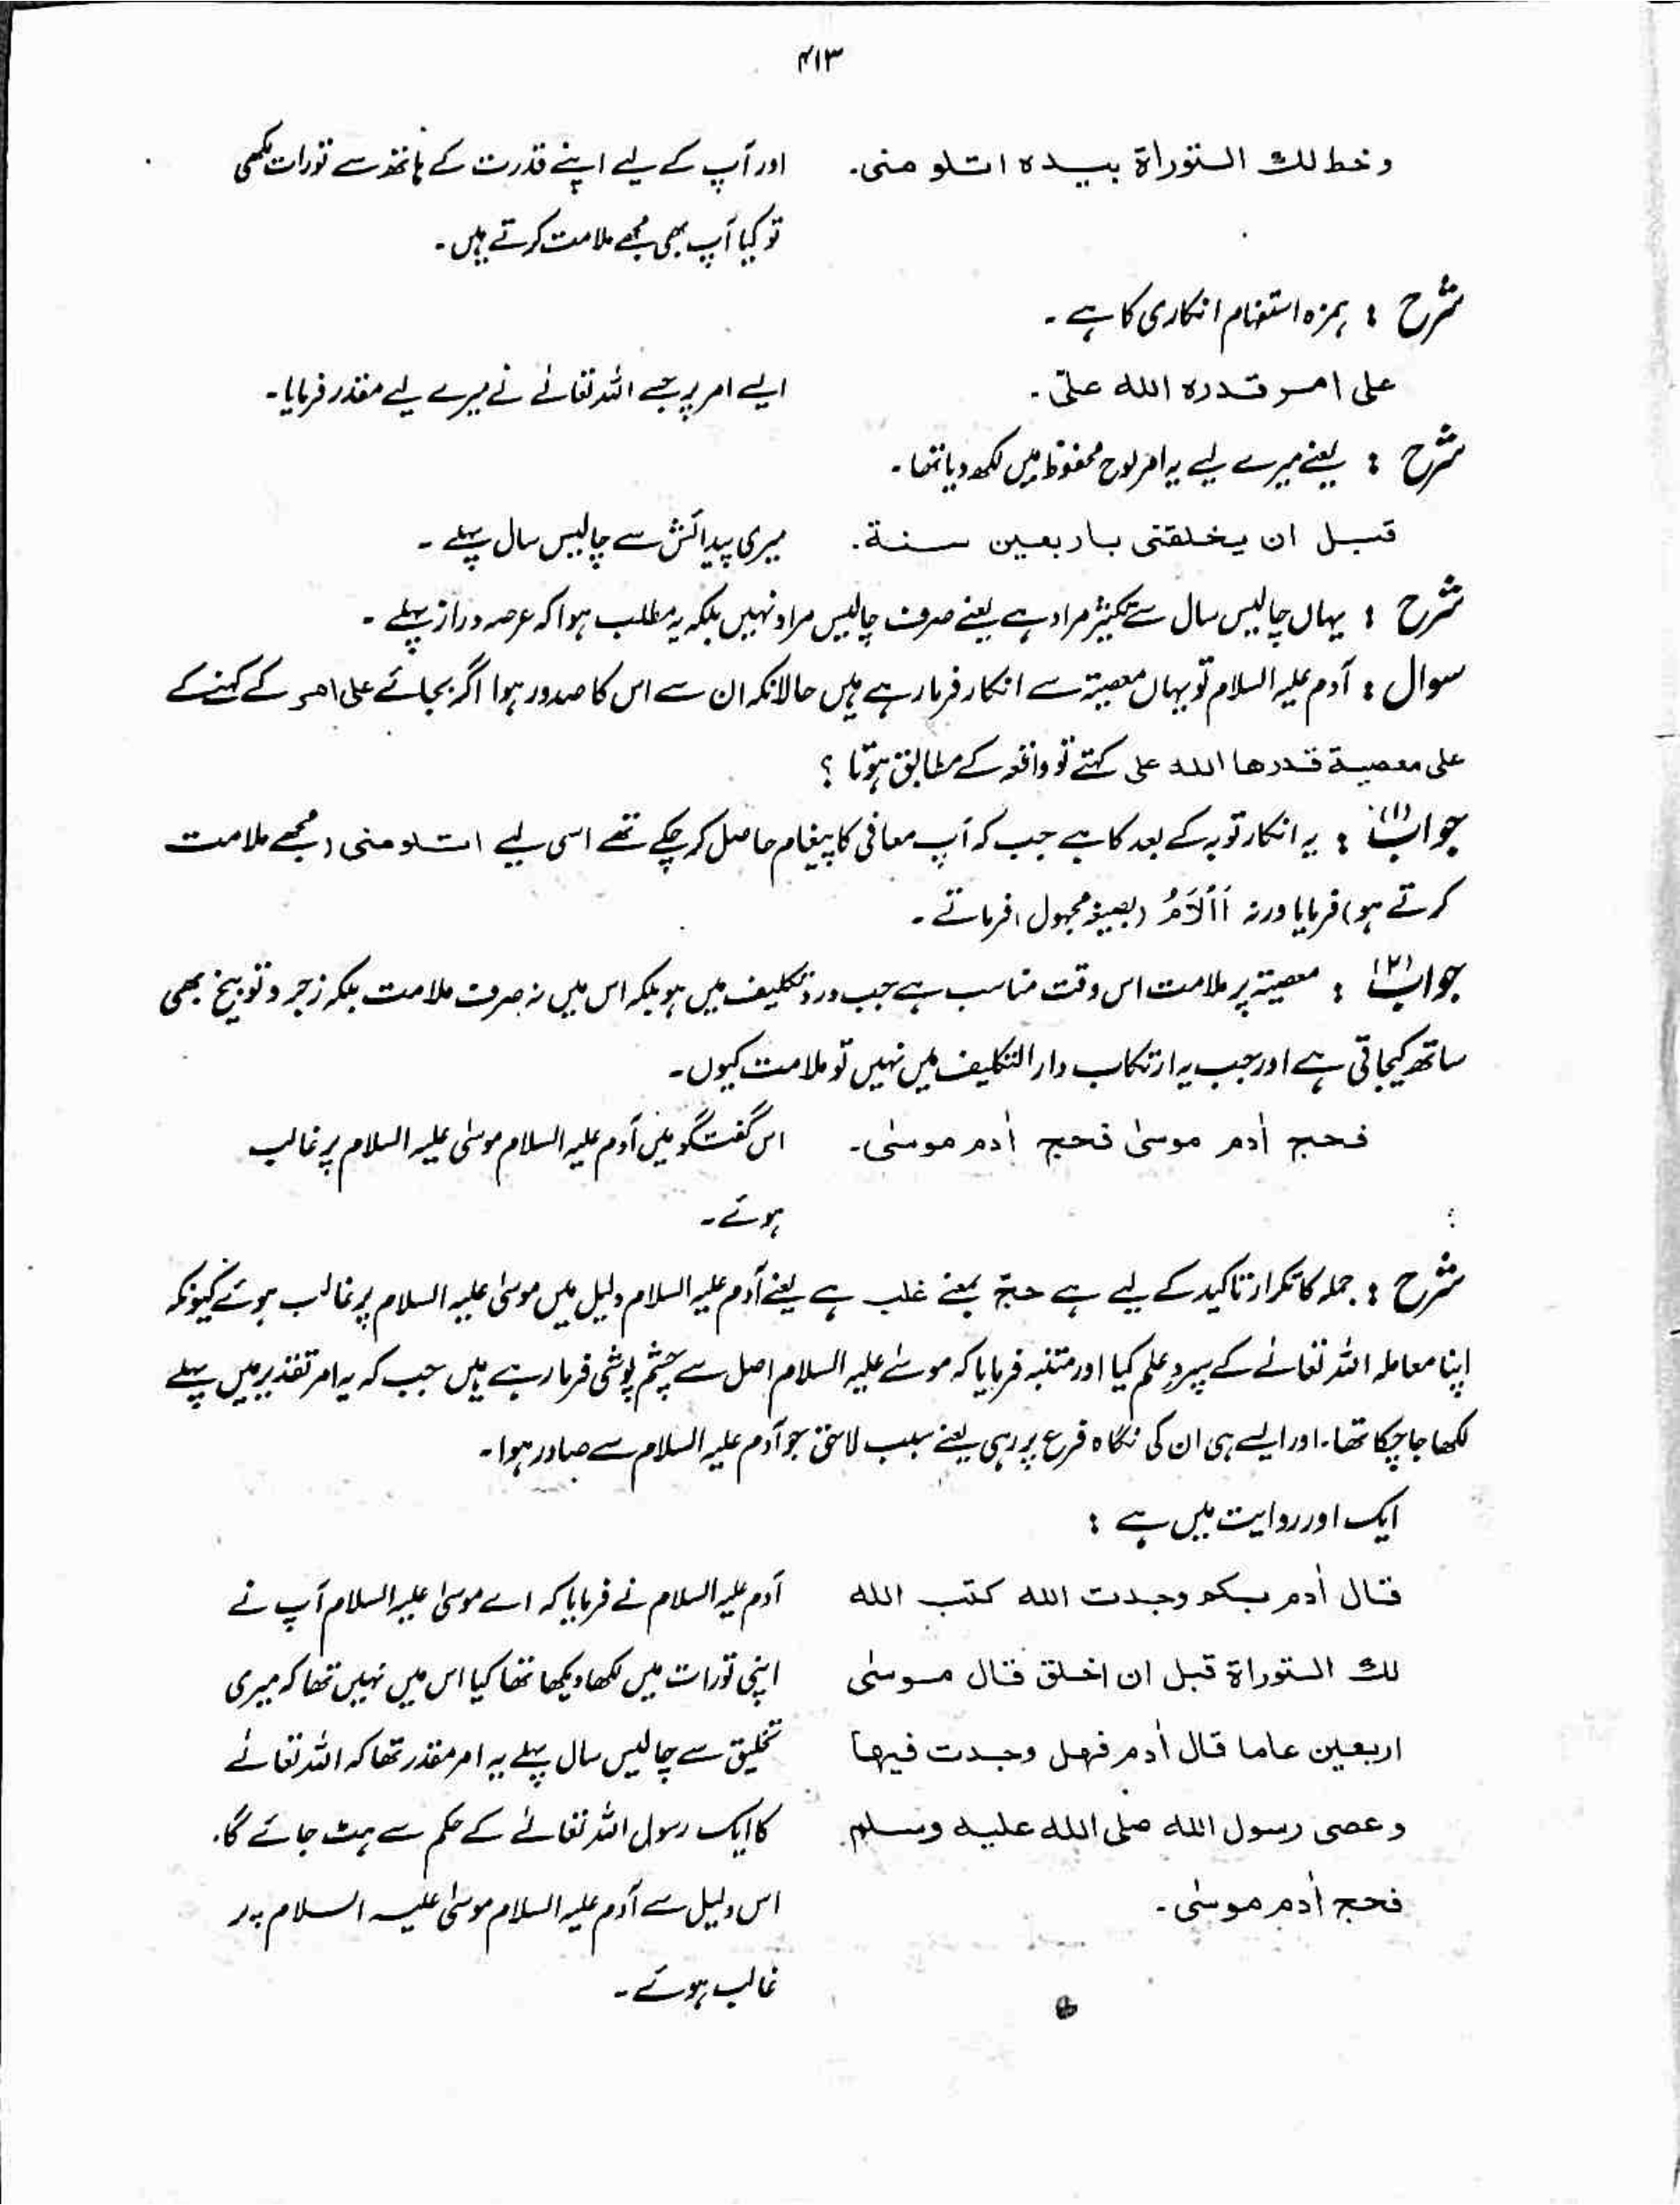 ۴۱۳
وخط لك التوراة بيده اتلومنى. اور آپ کے لیے اپنے قدرت کے ہاتھ سے تورات لکھی
تو کیا آپ بھی مجھے ملامت کرتے ہیں۔
شرح : ہمزہ استفہام انکاری کا ہے۔
على امر قدره الله علىّ۔ ایسے امر پر جسے اللہ تعالےٰ نے میرے لیے مقدر فرمایا۔
شرح : یعنے میرے لیے یہ امر لوح محفوظ میں لکھ دیا تھا۔
قبل ان يخلقنى باربعين سنة. میری پیدائش سے چالیس سال پہلے۔
شرح : یہاں چالیس سال سے تکثیر مراد ہے یعنے صرف چالیس مراد نہیں بلکہ یہ مطلب ہوا کہ عرصہ دراز پہلے۔
سوال : آدم علیہ السلام تو یہاں معصیۃ سے انکار فرما رہے ہیں حالانکہ ان سے اس کا صدور ہوا اگر بجائے علی امر کے کہنے کے
على معصية قدرها الله على کہتے تو واقعہ کے مطابق ہوتا ؟
جواب (۱) : یہ انکار توبہ کے بعد کا ہے جب کہ آپ معافی کا پیغام حاصل کر چکے تھے اسی لیے اتلومنى (مجھے ملامت
کرتے ہو) فرمایا ورنہ أَأُلَامُ (بصیغہ مجہول) فرماتے۔
جواب (۲) : معصیۃ پر ملامت اس وقت مناسب ہے جب ورد تکلیف میں ہو بلکہ اس میں نہ صرف ملامت بلکہ زجر و توبیخ بھی
ساتھ کیجاتی ہے اور جب یہ ارتکاب دار التکلیف میں نہیں تو ملامت کیوں۔
فحج أدم موسىٰ فحج أدم موسىٰ۔ اس گفتگو میں آدم علیہ السلام موسیٰ علیہ السلام پر غالب
ہوئے۔
شرح : جملہ کا تکرار تاکید کے لیے ہے حجّ بمعنے غلب ہے یعنے آدم علیہ السلام دلیل میں موسیٰ علیہ السلام پر غالب ہوئے کیونکہ
اپنا معاملہ اللہ تعالےٰ کے سپردِ علم کیا اور متنبہ فرمایا کہ موسےٰ علیہ السلام اصل سے چشم پوشی فرما رہے ہیں جب کہ یہ امر تقدیر میں پہلے
لکھا جا چکا تھا۔ اور ایسے ہی ان کی نگاہ فرع پر رہی یعنے سبب لاحق جو آدم علیہ السلام سے صادر ہوا۔
ایک اور روایت میں ہے :
قال أدم بكم وجدت الله كتب الله آدم علیہ السلام نے فرمایا کہ اے موسیٰ علیہ السلام آپ نے
لك التوراة قبل ان اخلق قال موسىٰ اپنی تورات میں لکھا دیکھا تھا کیا اس میں نہیں تھا کہ میری
اربعين عاما قال أدم فهل وجدت فيها تخلیق سے چالیس سال پہلے یہ امر مقدر تھا کہ اللہ تعالےٰ
وعصى رسول الله صلى الله عليه وسلم کا ایک رسول اللہ تعالےٰ کے حکم سے ہٹ جائے گا۔
فحج أدم موسىٰ۔ اس دلیل سے آدم علیہ السلام موسیٰ علیہ السلام پر
غالب ہوئے۔